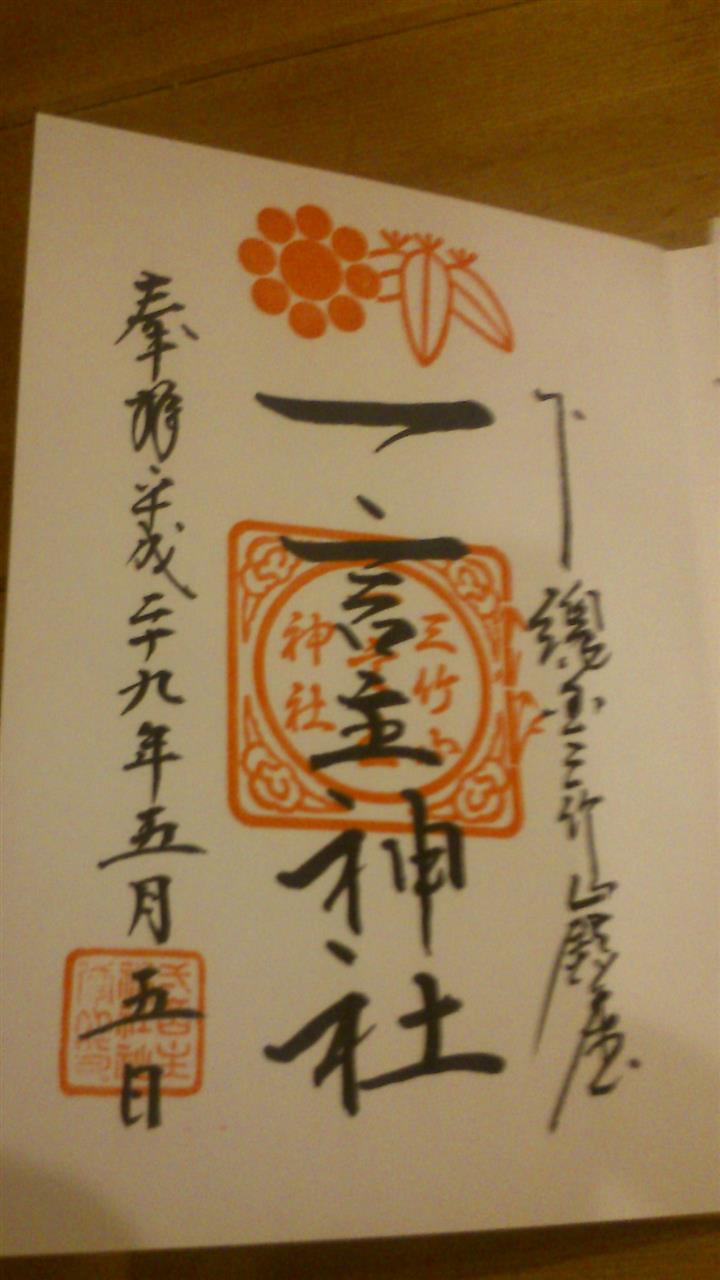 下総国三竹山鎮座
一言主神社
奉拝平成二十九年五月五日
三竹山
神社